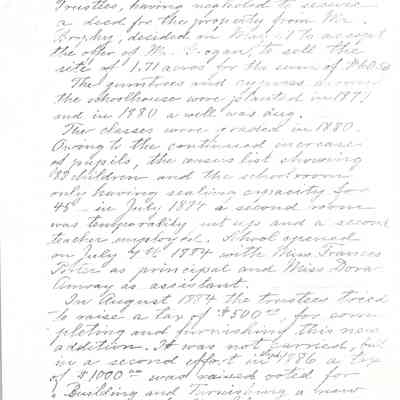 Trustees, having neglected to secure
a deed for the property from Mr.
Brophy, decided in to accept
the offer of Mr. Grogan, to sell the
site of 1.71 acres for the sum of
The gumtrees and cypress
the schoolhouse were planted in 1877
and in 1880 a well was dug.
The classes were graded in 1880.
Owing to the continued increase
of pupils, the census list showing
88 children and the schoolroom
only having seating capacity for
45 – in July 1874 a second room
was temporarily set up and a second
teacher employed. School opened
on July 7th 1884 with Miss Frances
as principal and Miss Dora
as assistant.
In August 1884 the trustees tried
to raise a tax of $500.00, for com
pleting and furnishing this new
addition. It was not carried, but
in a second effort in Sept 1886 a tax
of $1000.00 was raised voted for
Building and Furnishing a new